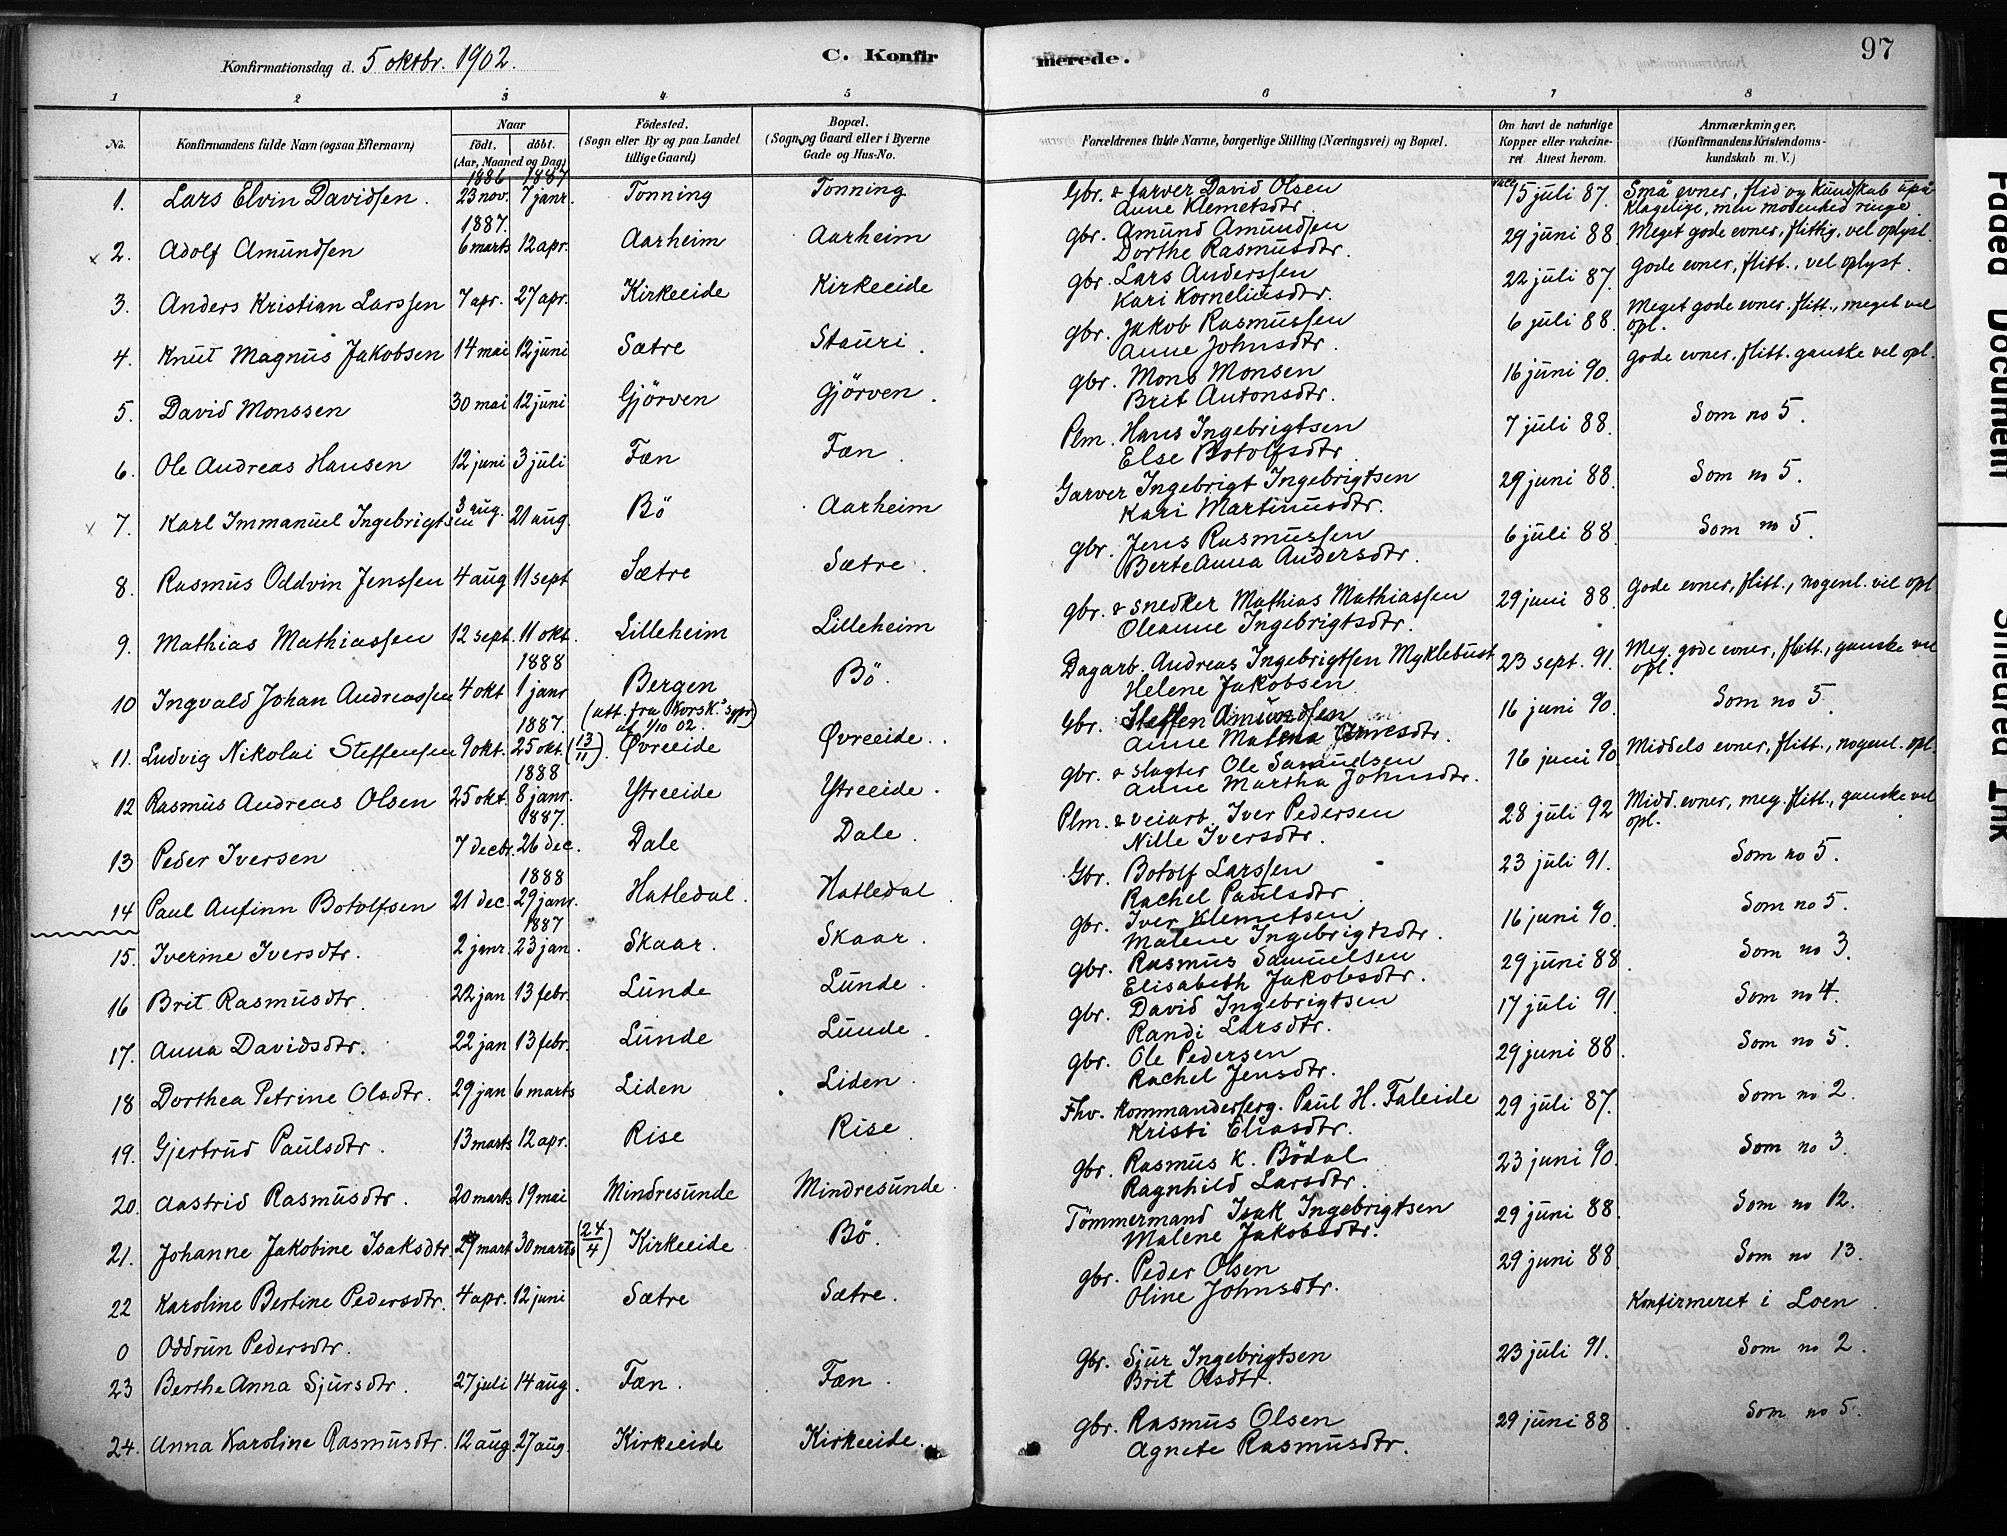 Konfirmationsdag d. 5 oktbr. 1902.
C. Konfirmerede.
97
1 2 3 4 5 6 7 8
No.
Konfirmandens fulde Navn (ogsaa Efternavn)
Naar
født. døbt.
(Aar, Maaned og Dag)
Fødested.
(Sogn eller By og paa Landet
tillige Gaard)
Bopæl.
(Sogn og Gaard eller i Byerne
Gade og Hus-No.
Forældrenes fulde Navne, borgerlige Stilling (Næringsvei) og Bopæl.
Om havt de naturlige
Kopper eller vakcine-
ret. Attest herom.
Anmærkninger.
(Konfirmandens Kristendoms-
kundskab m. V.)
1886 1887
1. Lars Elvin Davidssen. 23 nov. 7 janr. Tonning Tonning Gbr. & farver David Olsen 15 juli 87. Små evner, flid og kundskab upå
Anne Klemetsdtr. klagelige, men modenhed ringe.
1887.
x 2. Adolf Amundsen 6 marts 12 apr. Aarheim Aarheim gbr. Amund Amundsen 29 juni 88. Meget gode evner, flittig, vel oplyst.
Dorthe Rasmusdtr.
3. Anders Kristian Larssen 7 apr. 27 apr. Kirkeeide Kirkeeide gbr. Lars Anderssen 22 juli 87. Gode evner, flitt., vel oplyst.
Kari Korneliusdtr.
4. Knut Magnus Jakobsen 14 mai 12 juni Sætre Stauri. gbr. Jakob Rasmussen 6 juli 88. Meget gode evner. flitt., meget vel
Anne Johnsdtr. opl.
5. David Monssen 30 mai 12 juni Gjörven Gjörven. gbr. Mons Monsen 16 juni 90. Gode evner, flitt. ganske vel opl.
Brit Antonsdtr.
6 Ole Andreas Hansen 12 juni 3 juli Fæn Fæn. Plm. Hans Ingebrigtsen 7 juli 88. Som no 5.
Else Botolfsdtr.
x 7. Karl Immanuel Ingebrigtsen 3 aug. 21 aug. Bö Aarheim Garver Ingebrigt Ingebrigtsen 29 juni 88. Som no 5.
Kari Martinusdtr.
8. Rasmus Oddvin Jenssen 4 aug 11 sept Sætre Sætre. gbr. Jens Rasmussen 6 juli 88. Som no 5.
Berte Anna Andersdtr.
9. Mathias Mathiassen 12 sept. 11 okt. Lilleheim Lilleheim gbr. & snedker Mathias Mathiassen 29 juni 88. Gode evner, flitt., nogenl. vel opl
Oleanne Ingebrigtsdtr.
1888
10 Ingvald Johan Andreassen 4 okt 1 janr Bergen Bö. Dagarb. Andreas Ingebrigtsen Myklebust 23 sept. 91. Meg. gode evner, flitt., ganske vel
(att. fra Korsk.s sgpr) Helene Jakobsen opl.
1887. af 1/10 02.
x 11. Ludvig Nikolai Steffensen 9 okt. 25 okt. (13/11). Øvreeide Øvreeide. Gbr. Steffen Amundsen 16 juni 90. Som no 5.
1888
12 Rasmus Andreas Olsen 25 okt. 8 janr. Ytreeide Ytreeide. gbr. & slagter Ole Samuelsen 16 juni 90. Middels evner, flitt., nogenl. opl.
Anne Martha Johnsdtr.
1887.
13 Peder Iversen 7 decbr. 26 dec. Dale Dale. Plm. & veiarb. Iver Pedersen 28 juli 92 Midd. evner, meg. flitt., ganske vel
Nille Iversdtr. opl.
1888
14 Paul Anfinn Botolfsen 21 dec. 29 janr. Hatledal. Hatledal. Gbr. Botolf Larssen 23 juli 91. Som no 5.
Rachel Paulsdtr.
1887
15. Iverine Iversdtr. 2 janr. 23 jan. Skaar. Skaar. gbr. Iver Klemetsen 16 juni 90. Som no 5.
Malene Ingebrigtsdtr.
16 Brit Rasmusdtr. 22 jan 13 febr. Lunde Lunde. gbr. Rasmus Samuelsen 29 juni 88. Som no 3.
Elisabeth Jakobsdtr.
17. Anna Davidsdtr. 22 jan 13 febr. Lunde Lunde. gbr. David Ingebrigtsen 17 juli 91. Som no 4.
Randi Larsdtr.
18 Dorthea Petrine Olsdtr. 29 jan 6 marts Liden Liden. gbr. Ole Pedersen 29 juni 88. Som no 5.
Rachel Jensdtr.
19. Gjertrud Paulsdtr. 13 marts 12 apr. Rise Rise. Fhv. Kommandersjerg. Paul H. Faleide 29 juli 87. Som no 2.
Kristi Eliasdtr.
20. Aastrid Rasmusdtr. 20 marts 19 mai Mindresunde Mindresunde. gbr. Rasmus K. Bödal 23 juni 90. Som no 3.
Ragnhild Larsdtr.
21. Johanne Jakobine Isaksdtr. 27 mart 30 marts (24/4) Kirkeeide Bö. Tömmermand Isak Ingebrigtsen 29 juni 88. Som no 12.
Malene Jakobsdtr.
22 Karoline Bertine Pedersdtr. 4 apr. 12 juni Sætre Sætre. gbr. Peder Olsen 29 juni 88 Som no 13.
Oline Johnsdtr.
0 Oddrun Pedersdtr. Konfirmeret i Loen.
23 Berthe Anna Sjursdtr. 27 juli 14 aug. Fæn. Fæn. Gbr. Sjur Ingebrigtsen 23 juli 91. Som no 2.
Brit Olsdtr.
24. Anna Karoline Rasmusdtr. 12 aug. 27 aug. Kirkeeide Kirkeeide. gbr. Rasmus Olsen 29 juni 88. Som no 5.
Agnete Rasmusdtr.
Faded Document
Smeared Ink